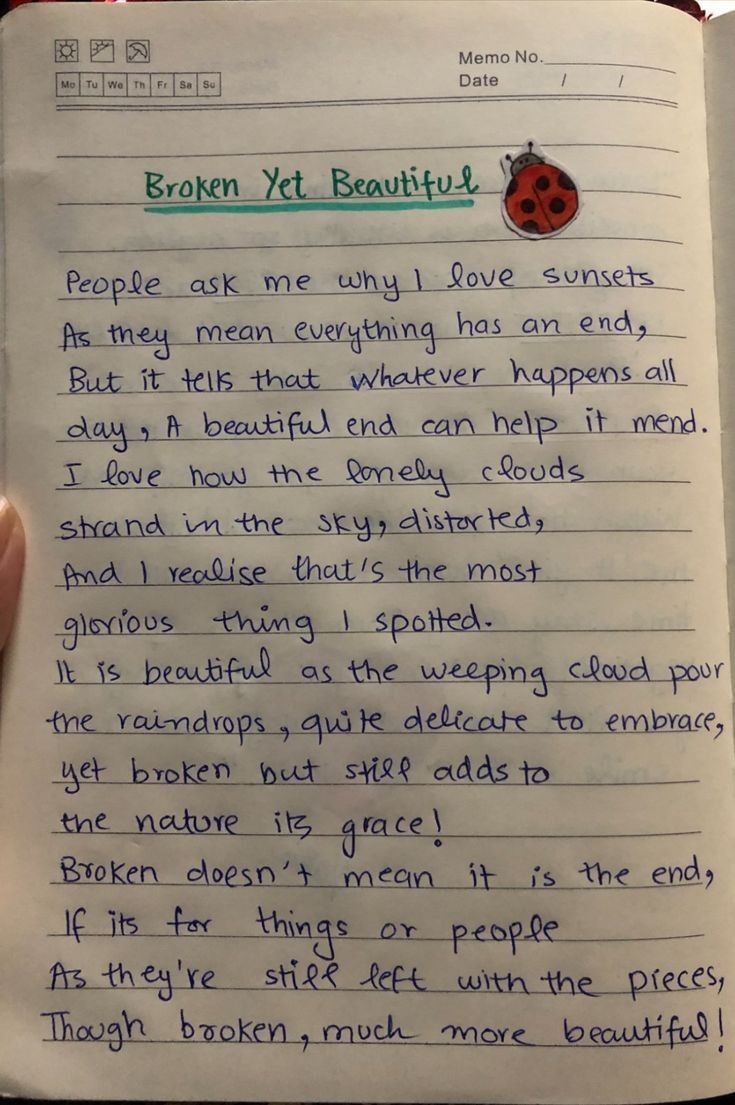 Memo No.
Mo Tu We Th Fr Sa Su
Date / /
Broken Yet Beautiful
People ask me why I love sunsets
As they mean everything has an end,
But it tells that whatever happens all
day, A beautiful end can help it mend.
I love how the lonely clouds
strand in the sky, distorted,
And I realise that's the most
glorious thing I spotted.
It is beautiful as the weeping cloud pour
the raindrops, quite delicate to embrace,
yet broken but still adds to
the nature its grace!
Broken doesn't mean it is the end,
If its for things or people
As they're still left with the pieces,
Though broken, much more beautiful!